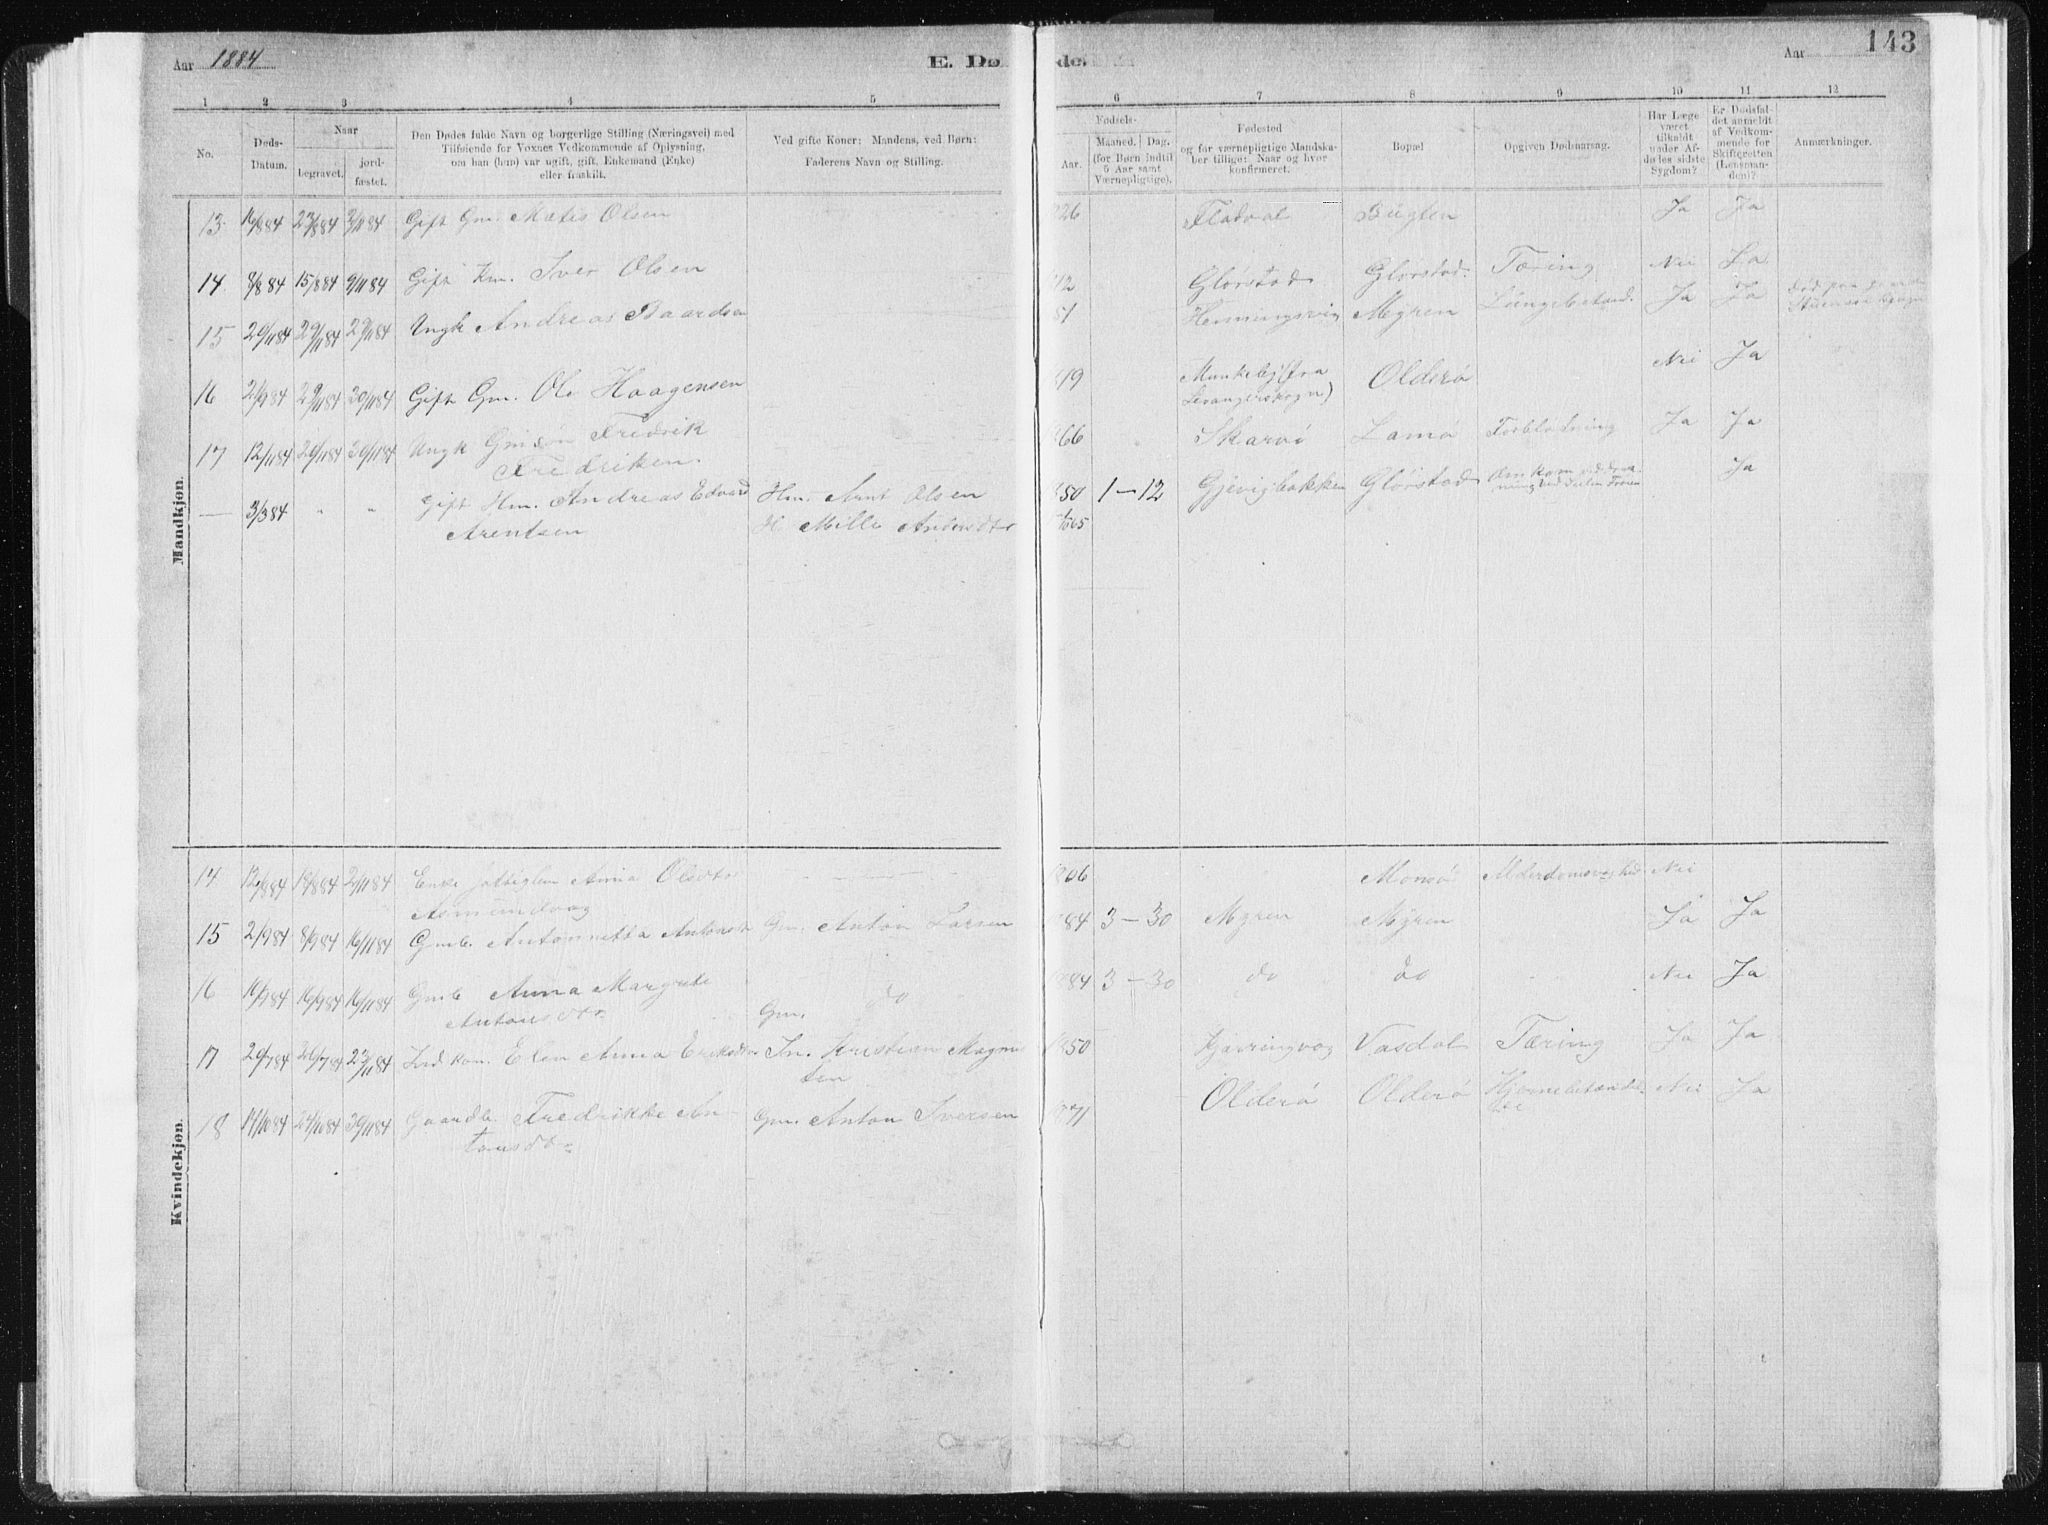 Aar 1884
E. Dø
de.
Aar
143
1 2 3 4 5 6 7 8 9 10 11 12
No.
Døds-Datum.
Naar
begravet.
jord-fæstet.
Den Dødes fulde Navn og borgerlige Stilling (Næringsvei) med
Tilføiende for Voxnes Vedkommende af Oplysning,
om han (hun) var ugift, gift, Enkemand (Enke)
eller fraskilt.
Ved gifte Koner: Mandens, ved Børn:
Faderens Navn og Stilling.
Fødsels-
Aar.
Maaned. Dag.
(for Børn indtil
5 Aar samt
Værnepligtige).
Fødested
og for værnepligtige Mandska-
ber tillige: Naar og hvor
konfirmeret.
Bopæl
Opgiven Dødsaarsag.
Har Læge
været
tilkaldt
under Af-
dødes sidste
Sygdom?
Er Dødsfal-
det anmeldt
af Vedkom-
mende for
Skifteretten
(Lensman-
den)?
Anmærkninger.
Mandkjøn.
13 16/8 84 23/8 84 2/11 84 Gift Gm. Matis Olsen 26 Fladval Bugten Ja Ja
14 8/8 84 15/8 84 9/11 84 Gift Km. Iver Olsen 12 Glørstad Glørstad Tæring Nei Ja
15 20/11 84 29/11 84 29/11 84 Ungk Andreas Baardsen 51 Henningsvig Myren Lungebetænd. Ja Ja
16 2/9 84 29/11 84 30/11 84 Gift Gm. Ole Haagensen 19 Munkeby (fra Olderø Nei Ja
Levangerskogn)
17 12/11 84 20/11 84 30/11 84 Ungk Gmsøn Fredrik 66 Skarvø Lamø Forblødning Ja Ja
Fredriksen
— 3/3 84 " " Gift Hm. Andreas Edvard Hm. Arnt Olsen 50 1–12 Gjevigbakken Glørstad Omkom ved Ja
Arentsen H. Mille Andersdtr 65
Kvindekjøn.
14 12/8 84 19/8 84 2/11 84 Enke fattiglem Anna Olsdtr 806 Monsø Alderdomssvaghed Nei
Asmundvag
15 2/9 84 8/9 84 16/11 84 Gmb. Antonetta Antonsdt Gm. Anton Larsen 84 3–30 Myren Myren Ja Ja
16 10/9 84 16/9 84 16/11 84 Gmb Anna Margrete do 84 3–30 do do Nei Ja
Antonsdtr Gm.
17 20/7 84 26/7 84 23/11 84 Ind.kon. Elen Anna Eriksdtr In. Kristian Magnus 850 Kjørringvag Vasdal Tæring Ja Ja
sen
18 14/10 84 24/10 84 30/11 84 Gaardb. Fredrikke An- Gm. Anton Iversen 871 Olderø Olderø Hjernebetændel- Nei Ja
tonsdtr se